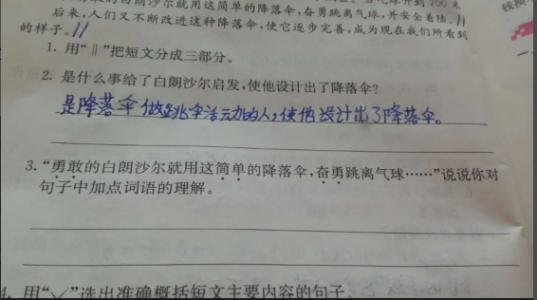 就用这简单的降落伞,奋勇跳离气球,并安全着陆.//
后来,人们又不断改进这种降落伞,使它逐步完善,成为现在我们所看到
的样子。//
1. 用“‖”把短文分成三部分。
2. 是什么事给了白朗沙尔启发,使他设计出了降落伞?
是降落伞做跳伞活动的人,使他设计出了降落伞。
3. “勇敢的白朗沙尔就用这简单的降落伞,奋勇跳离气球……”说说你对
句子中加点词语的理解。
4. 用“✓”选出准确概括短文主要内容的句子